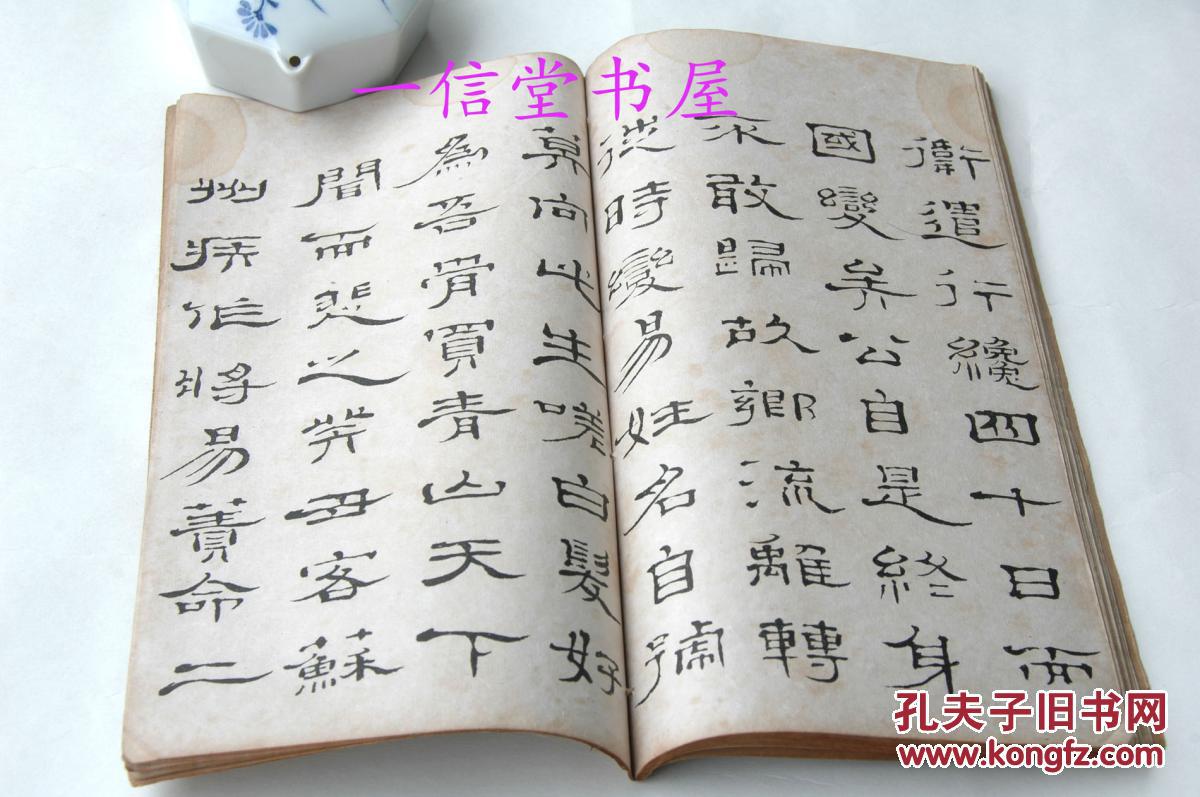 一信堂书屋
衛遣行纔四十日而
國變矣公自是終身
不敢歸故鄉流離轉
徙時變易姓名自號
莫向此生嗟白髮好
為吾骨買青山天下
聞而悲之癸丑客蘇
州疾作將易簀命二
孔夫子旧书网
www.kongfz.com